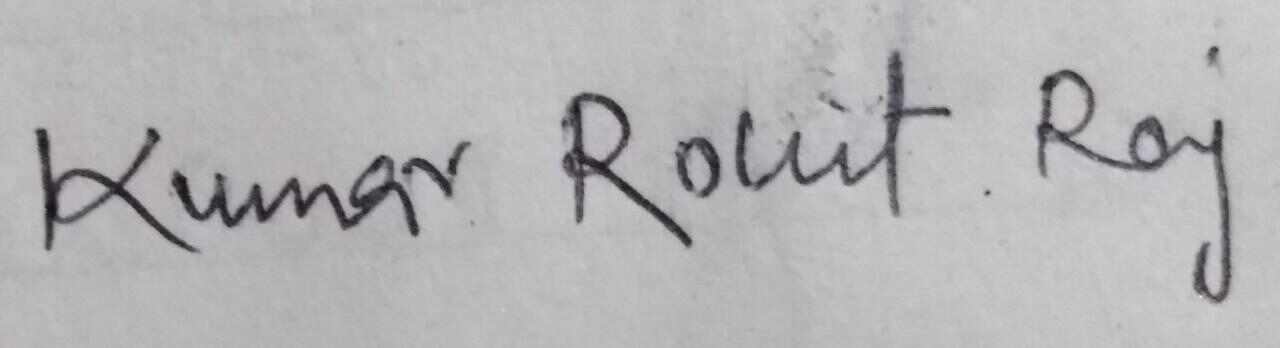 Kumar Rohit Raj